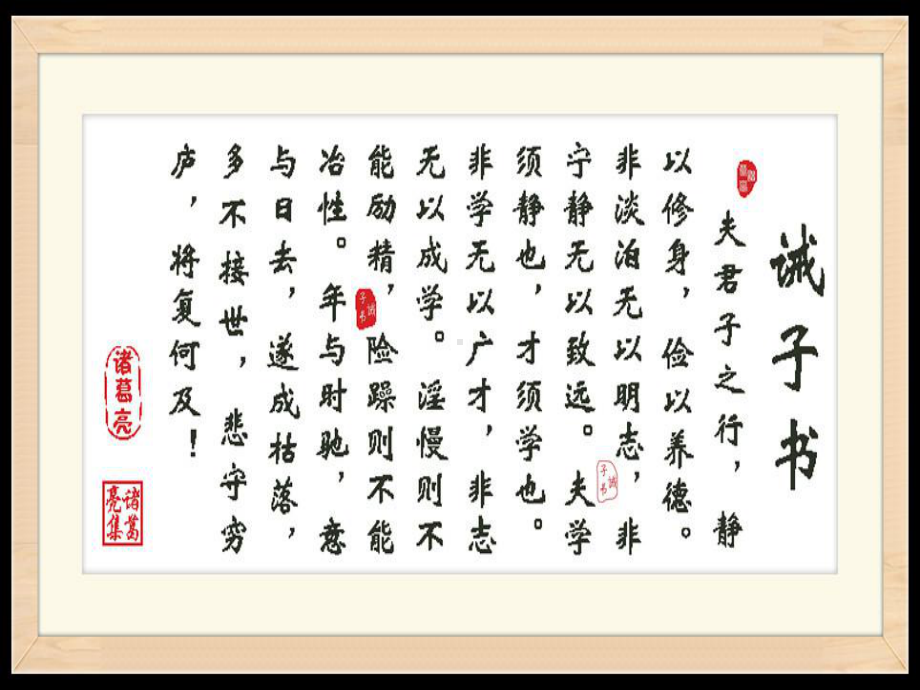 诫子书
夫君子之行，静
以修身，俭以养德。
非淡泊无以明志，非
宁静无以致远。夫学
须静也，才须学也。
非学无以广才，非志
无以成学。淫慢则不
能励精，险躁则不能
冶性。年与时驰，意
与日去，遂成枯落，
多不接世，悲守穷
庐，将复何及！
诫
子书
诫
子书
诸葛亮
诸葛
亮集